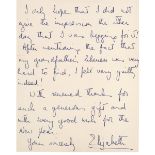 I only hope that I did not
give the impression the other
day that I was begging for it!
After mentioning the fact that
my grandfather's likeness was very
hard to find, I felt very guilty
indeed!
With renewed thanks for
such a generous gift and
with every good wish for the
New Year,
Yours sincerely
Elizabeth